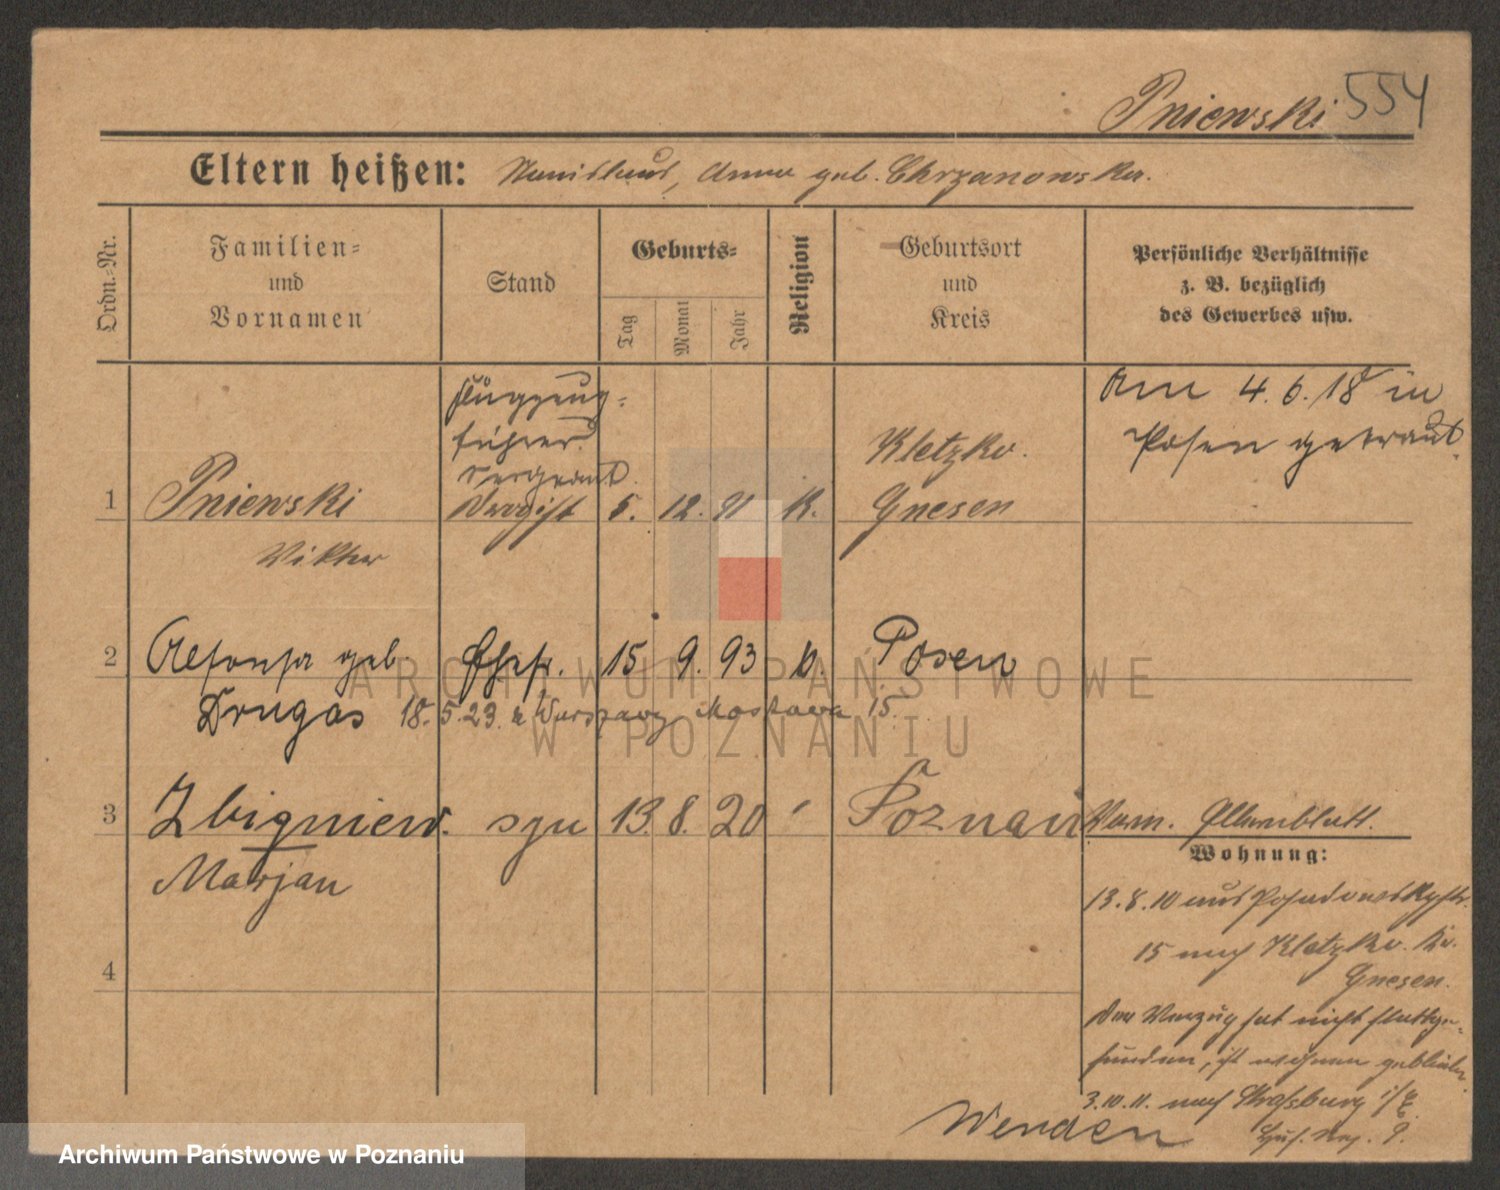 Pniewski 554
Eltern heißen: Stanislaus, Anna geb. Chrzanowska.
Ordn.-Nr.
Familien-
und
Vornamen
Stand
Geburts-
Tag
Monat
Jahr
Religion
Geburtsort
und
Kreis
Persönliche Verhältnisse
z. B. bezüglich
des Gewerbes usw.
Flugzeug-
führer
Sergeant.
1 Pniewski Drogist 5. 12. 91 K. Kletzko. Gnesen
Viktor
Am 4. 6. 18 in
Posen getraut.
2 Alfonsa geb. Ehefr. 15 9. 93 k. Posen
Drugas 18.5.23. z Warszawy Mostowa 15.
3 Zbigniew syn 13. 8. 20 Poznań
Marjan
Vom. Elternblatt.
Wohnung:
13.8.10 aus Posadowskystr.
15 nach Kletzko. Kr.
Gnesen.
Der Verzug hat nicht stattge-
funden, ist wohnen geblieben
3.10.11. nach Strassburg i/E
4
Wenden
ARCHIWUM PAŃSTWOWE
W POZNANIU
Archiwum Państwowe w Poznaniu